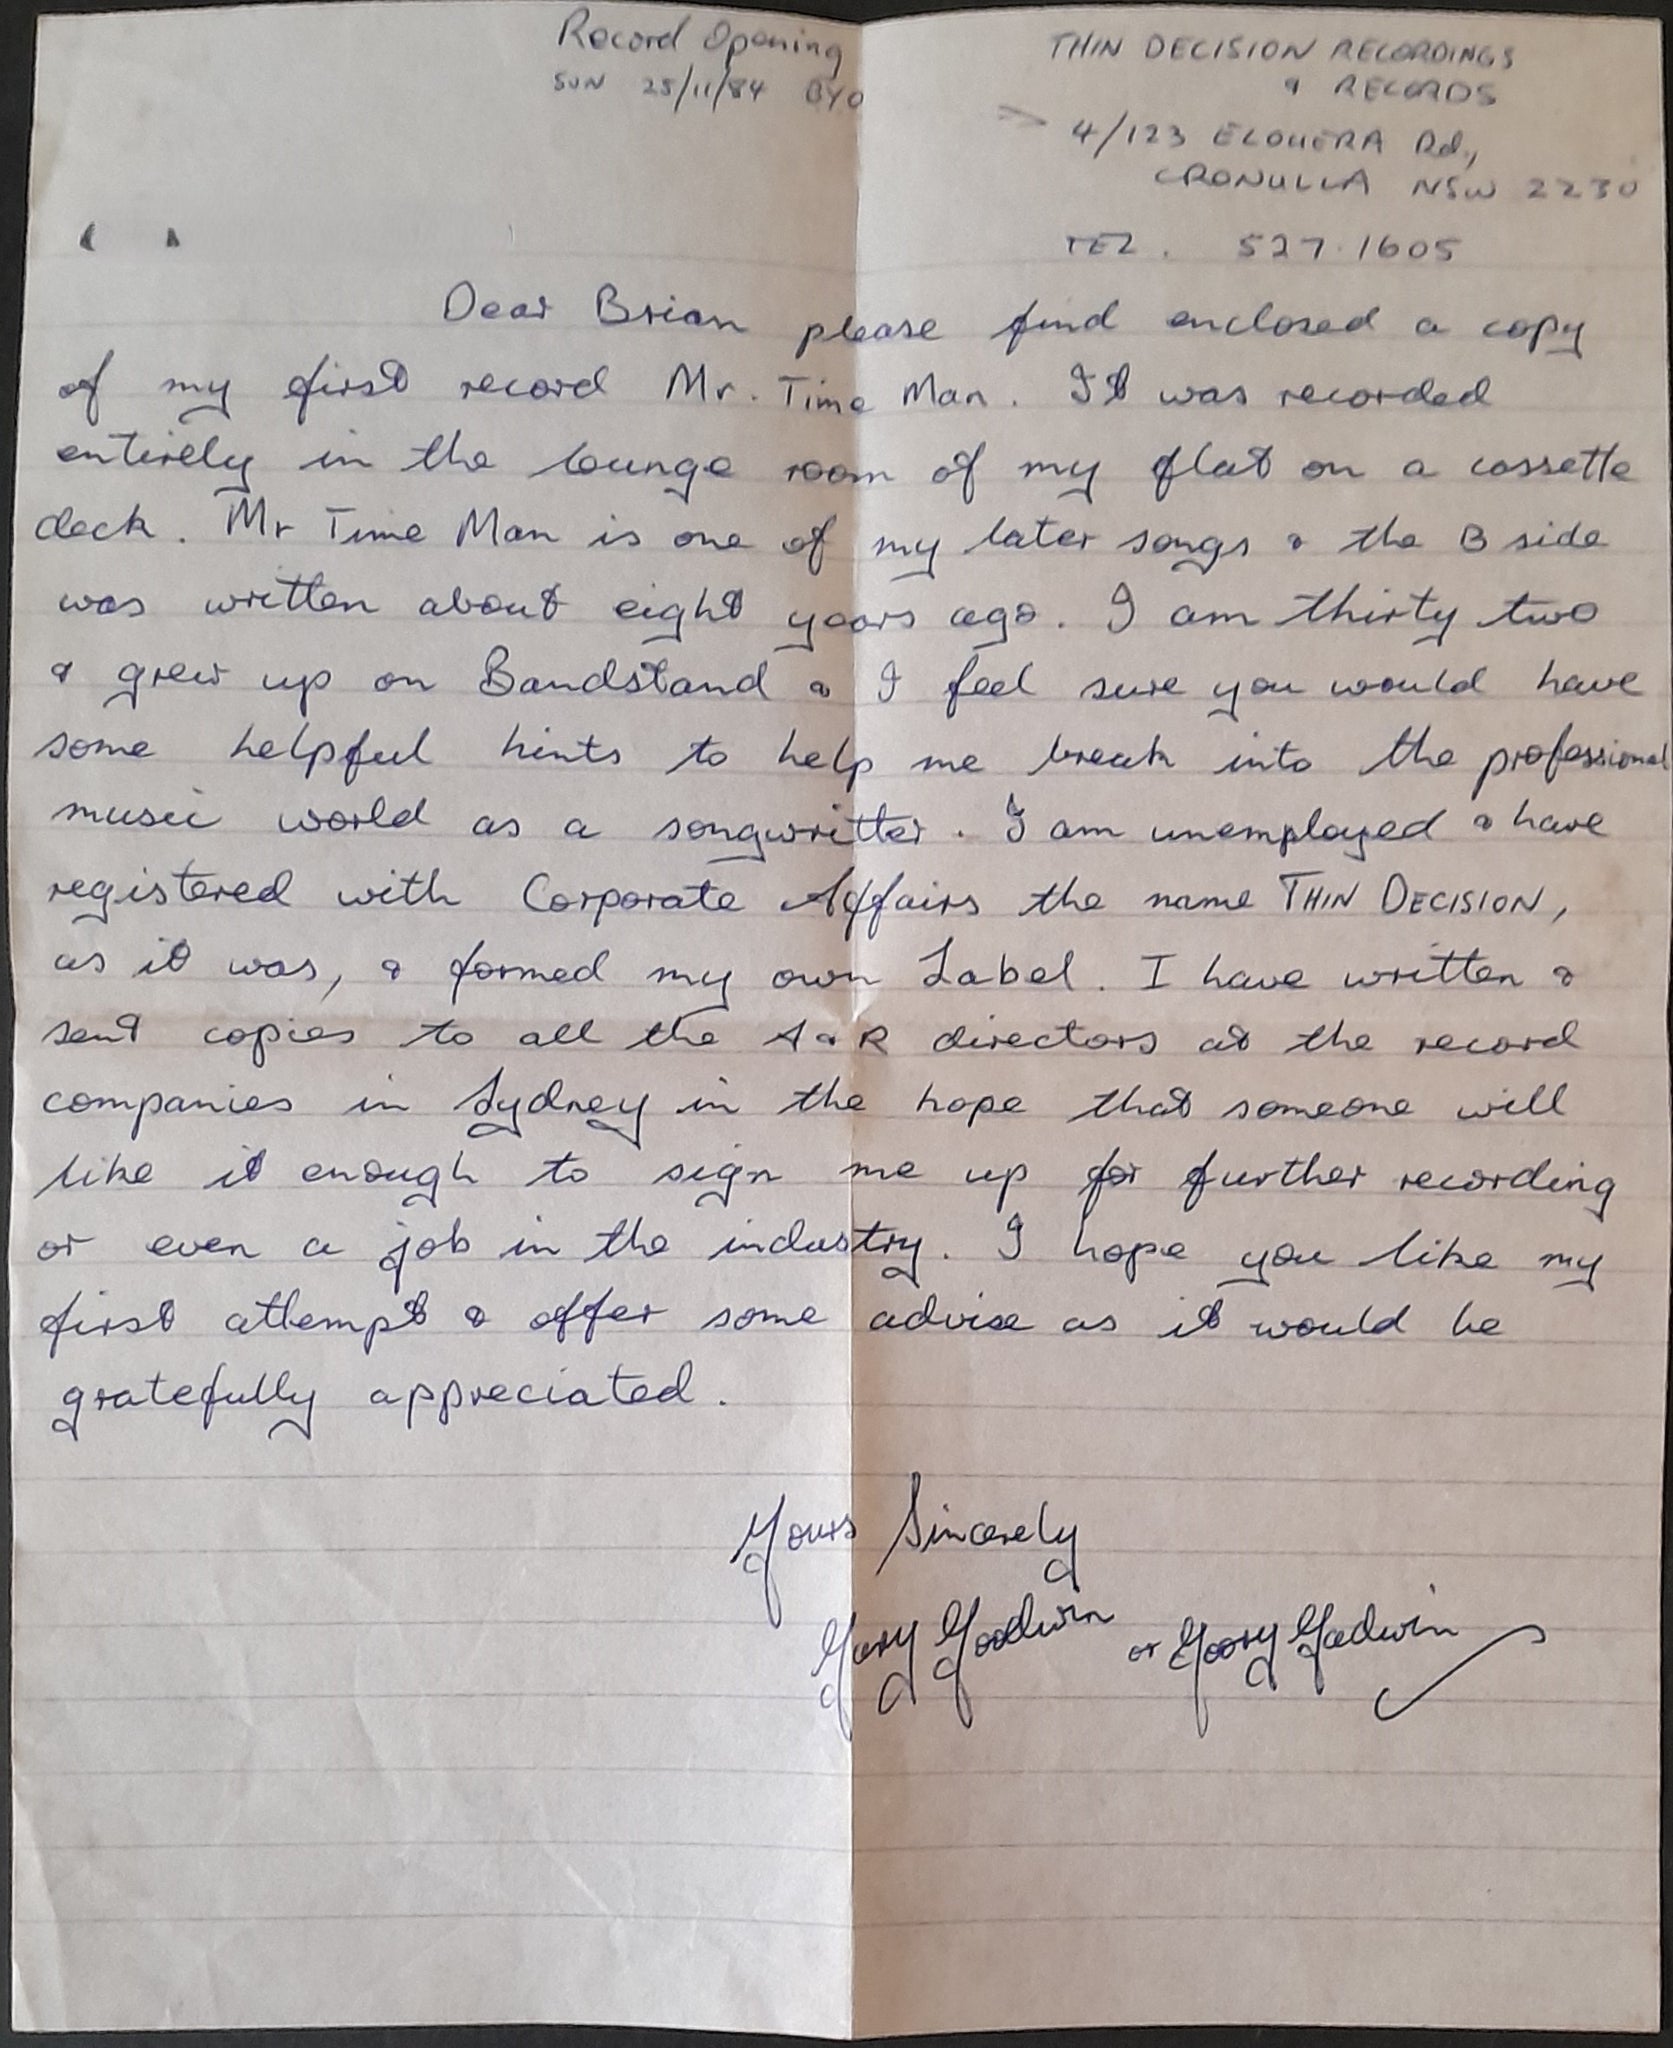 Record Opening
SUN 25/11/84 BYO
THIN DECISION RECORDINGS
& RECORDS
4/123 ELOUERA Rd.,
CRONULLA NSW 2230
TEL. 527.1605
Dear Brian please find enclosed a copy
of my first record Mr. Time Man. It was recorded
entirely in the lounge room of my flat on a cassette
deck. Mr Time Man is one of my later songs & the B side
was written about eight years ago. I am thirty two
& grew up on Bandstand & I feel sure you would have
some helpful hints to help me break into the professional
music world as a songwritter. I am unemployed & have
registered with Corporate Affairs the name THIN DECISION,
as it was, & formed my own Label. I have written &
sent copies to all the A & R directors at the record
companies in Sydney in the hope that someone will
like it enough to sign me up for further recording
or even a job in the industry. I hope you like my
first attempt & offer some advise as it would be
gratefully appreciated.
Yours Sincerely
Gary Goodwin or Gary Godwin